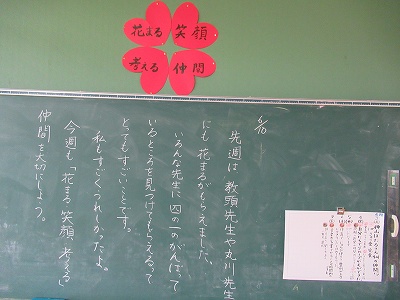 花まる
笑顔
考える
仲間
先週は教頭先生や丸川先生
にも花まるがもらえました。
いろんな先生に四の一のがんばって
いるところを見つけてもらえるって
とってもすごいことです。
私もすごくうれしかったよ。
今週も「花まる 笑顔、考える」
仲間を大切にしよう。